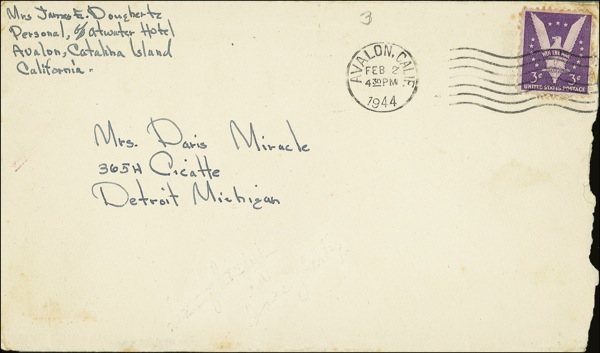 Mrs James E. Dougherty
Personal, c/o Atwater Hotel
Avalon, Catalina Island
California.
3
AVALON, CALIF.
FEB 2
4 30 PM
1944
WIN THE WAR
3¢ 3¢
UNITED STATES POSTAGE
Mrs. Davis Miracle
365H Cicatte
Detroit Michigan